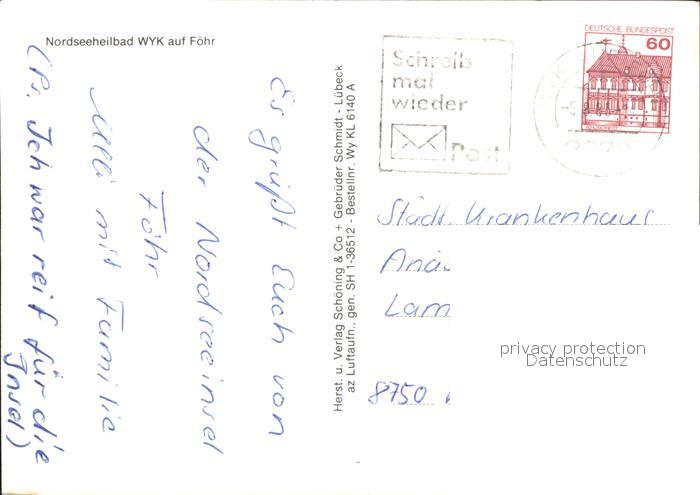 Nordseeheilbad WYK auf Föhr
Es grüßt Euch von
der Nordseeinsel
Föhr
Ulli mit Familie
(Ps. Ich war reif für die
Insel)
Herst. u. Verlag Schöning & Co + Gebrüder Schmidt - Lübeck
az Luftaufn., gen. SH 1-36512 - Bestellnr. Wy KL 6140 A
Schreib
mal
wieder
Post
DEUTSCHE BUNDESPOST
60
Städt. Krankenhaus
Anäs
Lam
8750
privacy protection
Datenschutz